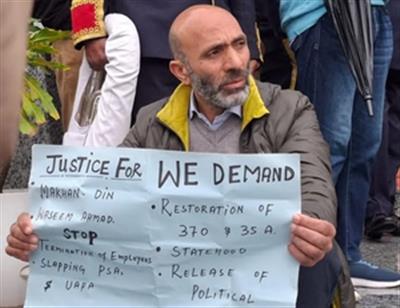 JUSTICE FOR
• MAKHAN DIN
• WASEEM AHMAD.
STOP
• TERMINATION OF EMPLOYEES
• SLAPPING PSA.
& UAPA
WE DEMAND
• RESTORATION OF
370 & 35 A.
• STATEHOOD
• RELEASE OF
POLITICAL